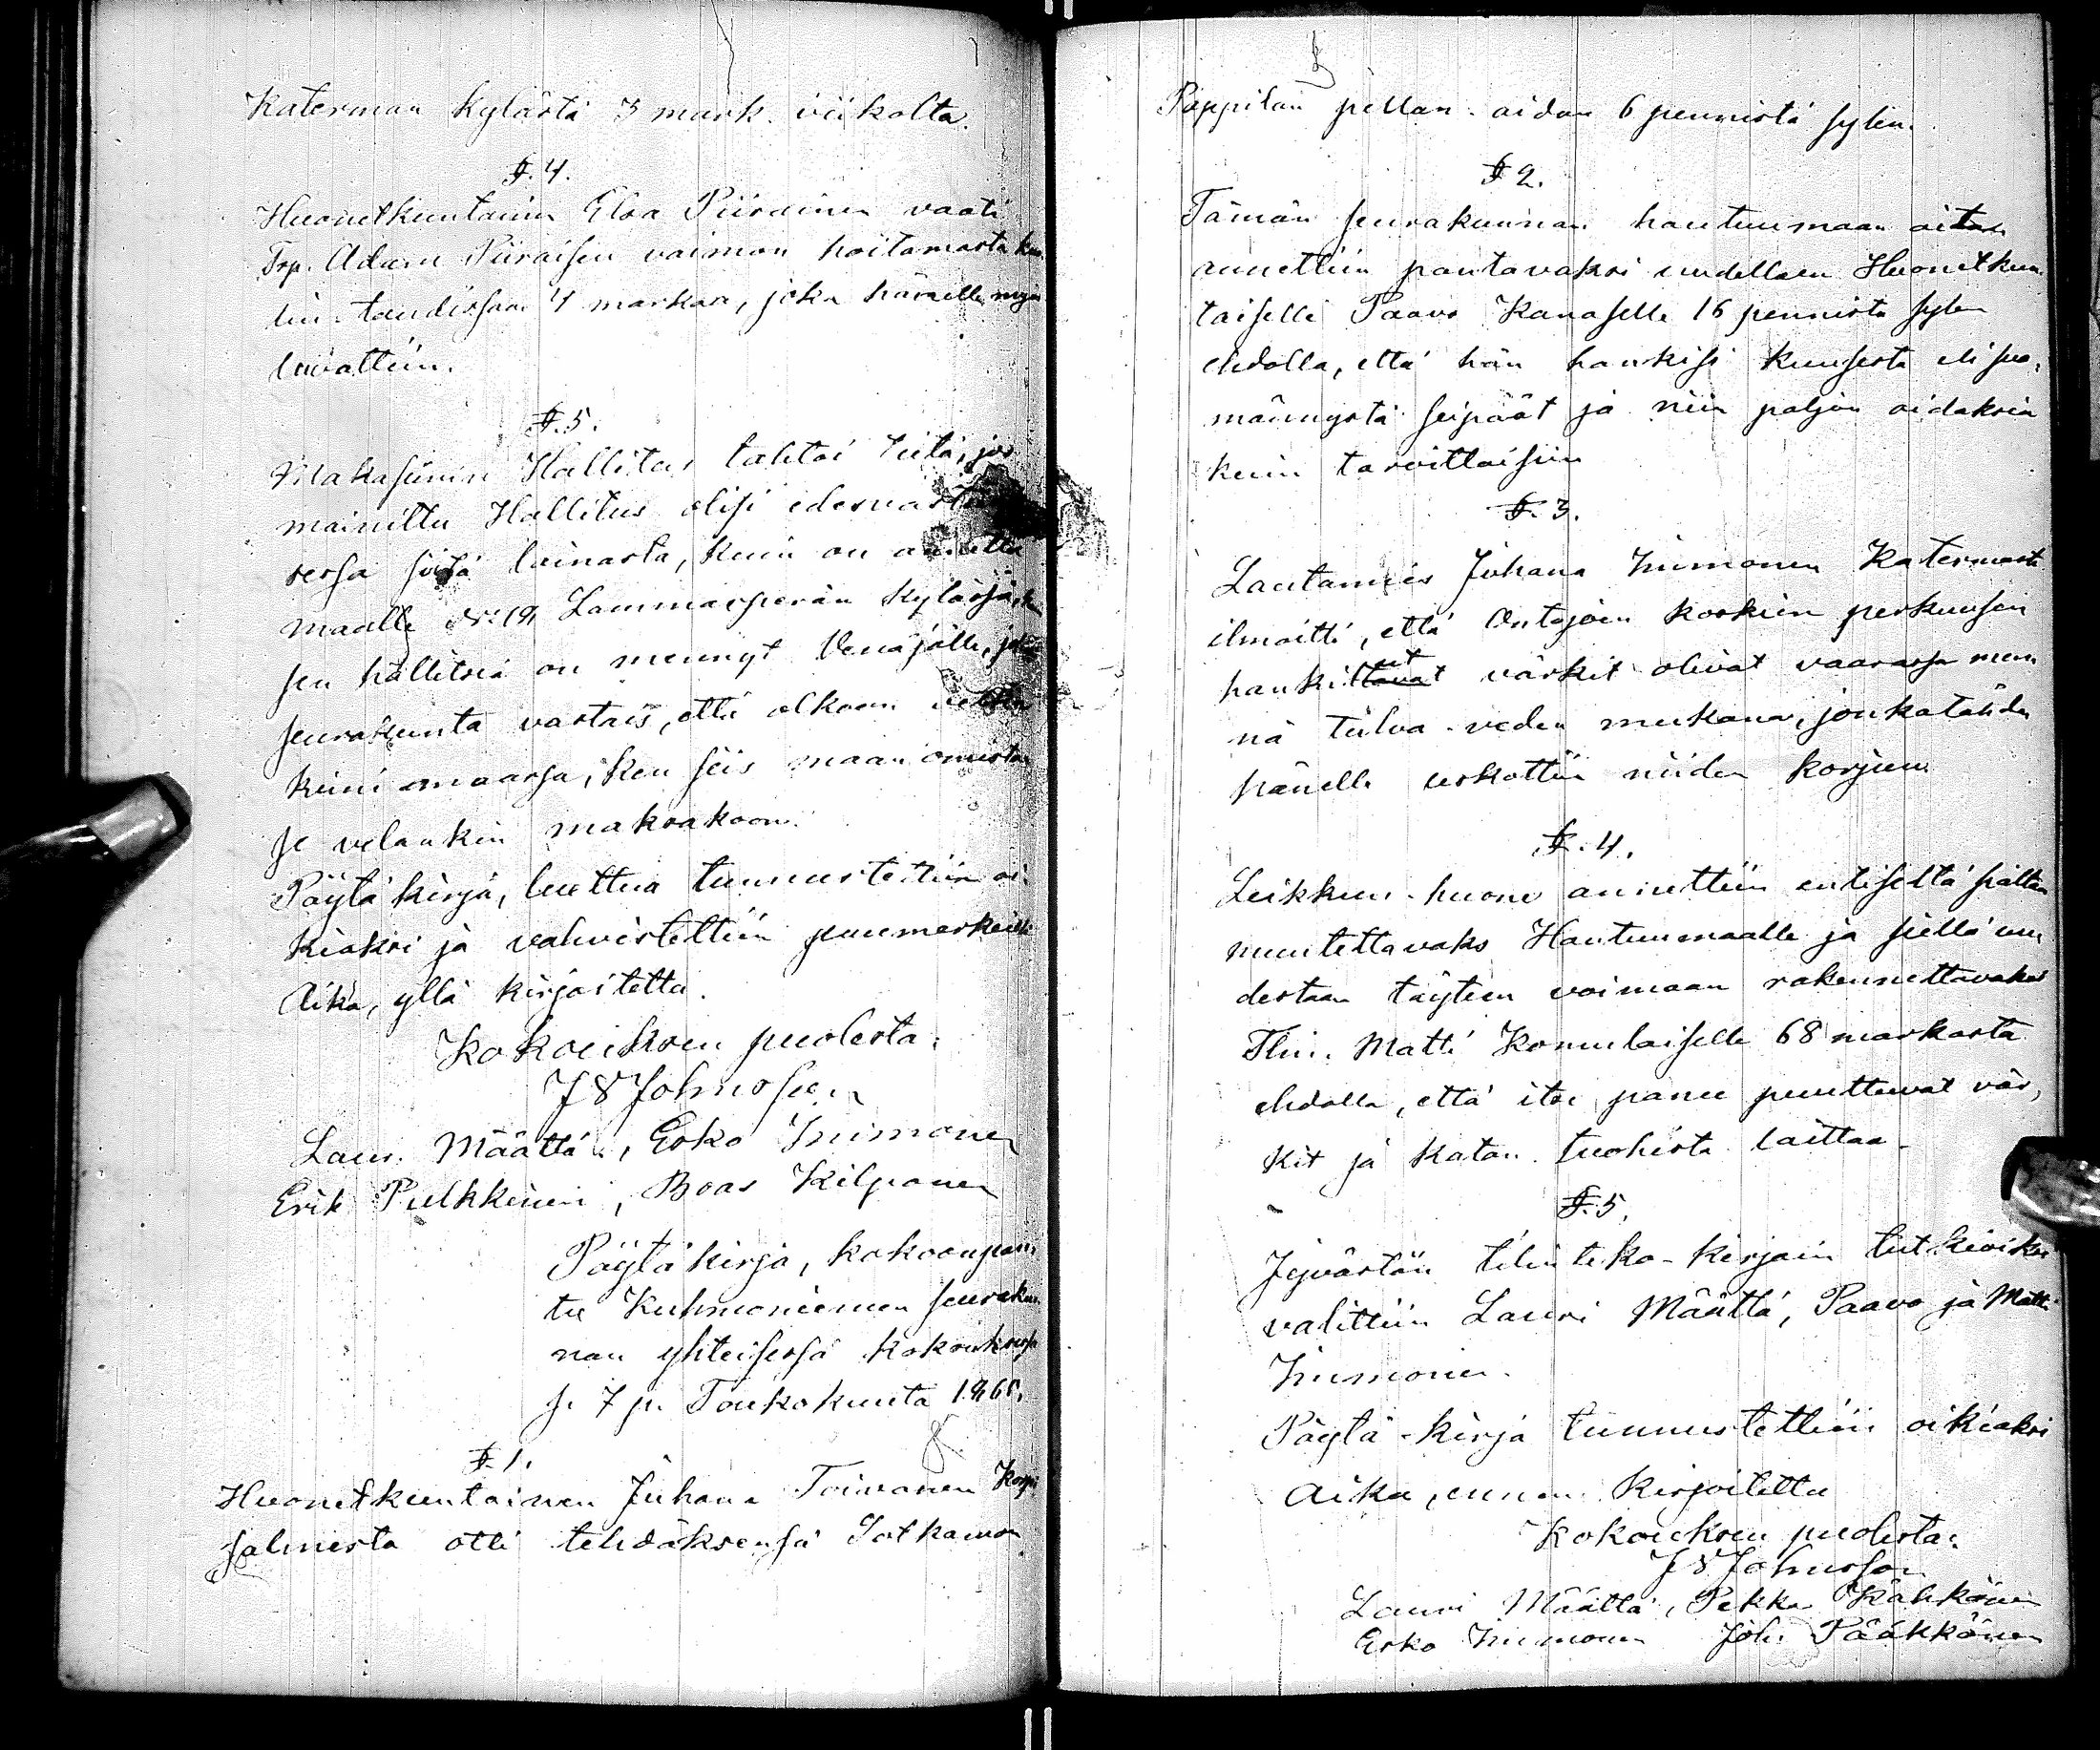 Katerman kylästä 3 mark. viikolta.
§. 4.
Huonetkuntainen Elsa Piirainen vaati
Trp. Adam Piiraisen vaimon hoitamasta kuu-
lin-taudissaan 4 markkaa, joka hänelle myön
luvattiin.
§. 5.
Makasiinin Hallitus tahtoi tietä, jos
mainittu Hallitus olisi edesvastauk
sessa siitä lainasta, kuin on annettu
maalle No 19 Lammasperän kylässä,
sen hallitsia on mennyt Venäjälle, johon
seurakunta vastais, että olkoon velka
kiini maassa, ken siis maan omistaa
se velankin maksakoon.
Pöytäkirja, luettua tunnustettiin oi-
kiaksi ja vahvistettiin puumerkeillä
Aika, yllä kirjoitettu.
Kokouksen puolesta:
J V Johnsson
Laur. Määttä, Esko Immonen
Erik Pulkkinen, Boas Kilponen
Pöytäkirja, kokoonpan-
tu Kuhmoniemen seurakun-
nan yhteisessä kokouksessa
s. 7 p. Toukokuuta 1865,
§. 1.
Huonetkuntainen Juhana Toivanen Korpi
salmesta otti tehdäksensä Sotkamon
Pappilan pellan-aidan 6 pennistä sylen.
§ 2.
Tämän seurakunnan hautuumaan aitan
annettiin pantavaksi uudellaen Huonetkun-
taiselle Paavo Kanaselle 16 pennistä sylen
ehdolla, että hän hankisi kuusesta eli suo-
männystä seipäät ja niin paljon aidaksia
kuin tarvittaisiin
§. 3.
Lautamies Juhana Immonen Katermasta
ilmoitti, että Ontojoen koskien perkuusen
hankitut värkit olivat vaarassa men-
nä tulva-veden mukana, jonkatähden
hänelle uskottiin niiden korjuu
§. 4.
Leikkuu-huone annettiin entiseltä sialtaan
muutettavaks Hautuumaalle ja siellä uu-
destaan täyteen voimaan rakennettavaksi
Tlin. Matti Komulaiselle 68 markasta
ehdolla, että itse panee puuttuvat vär-
kit ja katon tuohista laittaa-
§. 5.
Jyvästön tilinteko-kirjain tutkioiksi
valittiin Lauri Määttä, Paavo ja Matti
Immonen.
Pöytä-kirja tunnustettiin oikiaksi
Aika, ennen kirjoitettu
Kokouksen puolesta:
J V Johnsson
Lauri Määttä, Pekka Kähkönen
Esko Immonen Joh. Pääkkönen